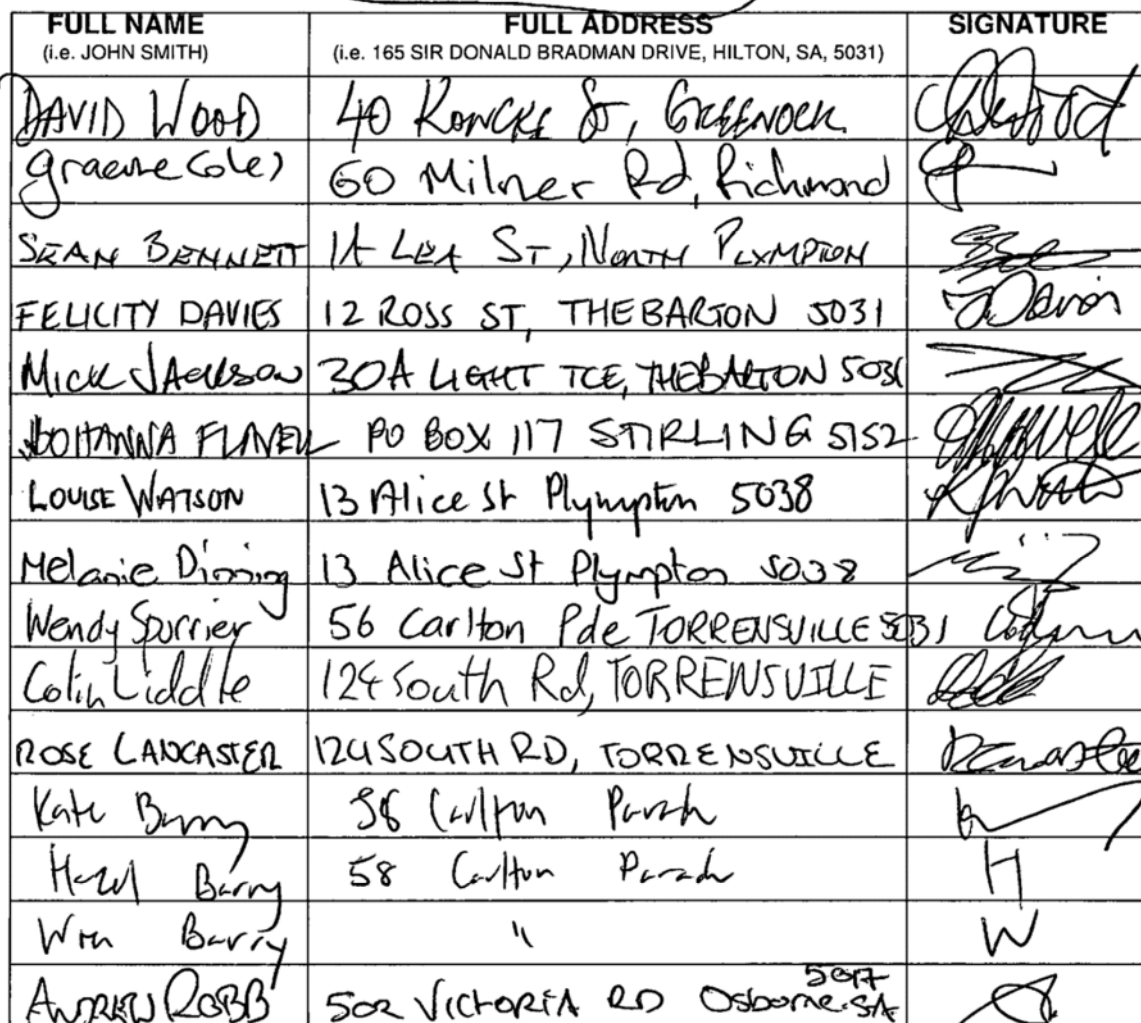 FULL NAME FULL ADDRESS SIGNATURE
(i.e. JOHN SMITH) (i.e. 165 SIR DONALD BRADMAN DRIVE, HILTON, SA, 5031)
DAVID WOOD 40 St, GREENOCK
Graeme Coles 60 Milner Rd, Richmond
SEAN BENNETT 1A LEA ST, NORTH PLYMPTON
FELICITY DAVIES 12 ROSS ST, THEBARTON 5031
MICK JACKSON 30A LIGHT TCE, THEBARTON 5031
JOHANNA FLAVELL PO BOX 117 STIRLING 5152
LOUISE WATSON 13 Alice St Plympton 5038
Melanie 13 Alice St Plympton 5038
Wendy Spurrier 56 Carlton Pde TORRENSVILLE 5031
Colin Liddle 124 South Rd, TORRENSVILLE
ROSE LANCASTER 124 SOUTH RD, TORRENSVILLE
Kate Barry 58 Carlton Parade
Hazel Barry 58 Carlton Parade H
Win Barry " W
ANDREW ROBB 502 VICTORIA RD Osborne SA 5017